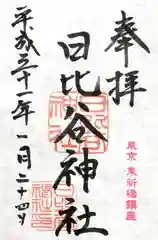 奉拝
日比谷神社
東京 東新橋鎮座
平成三十一年一月二十四日